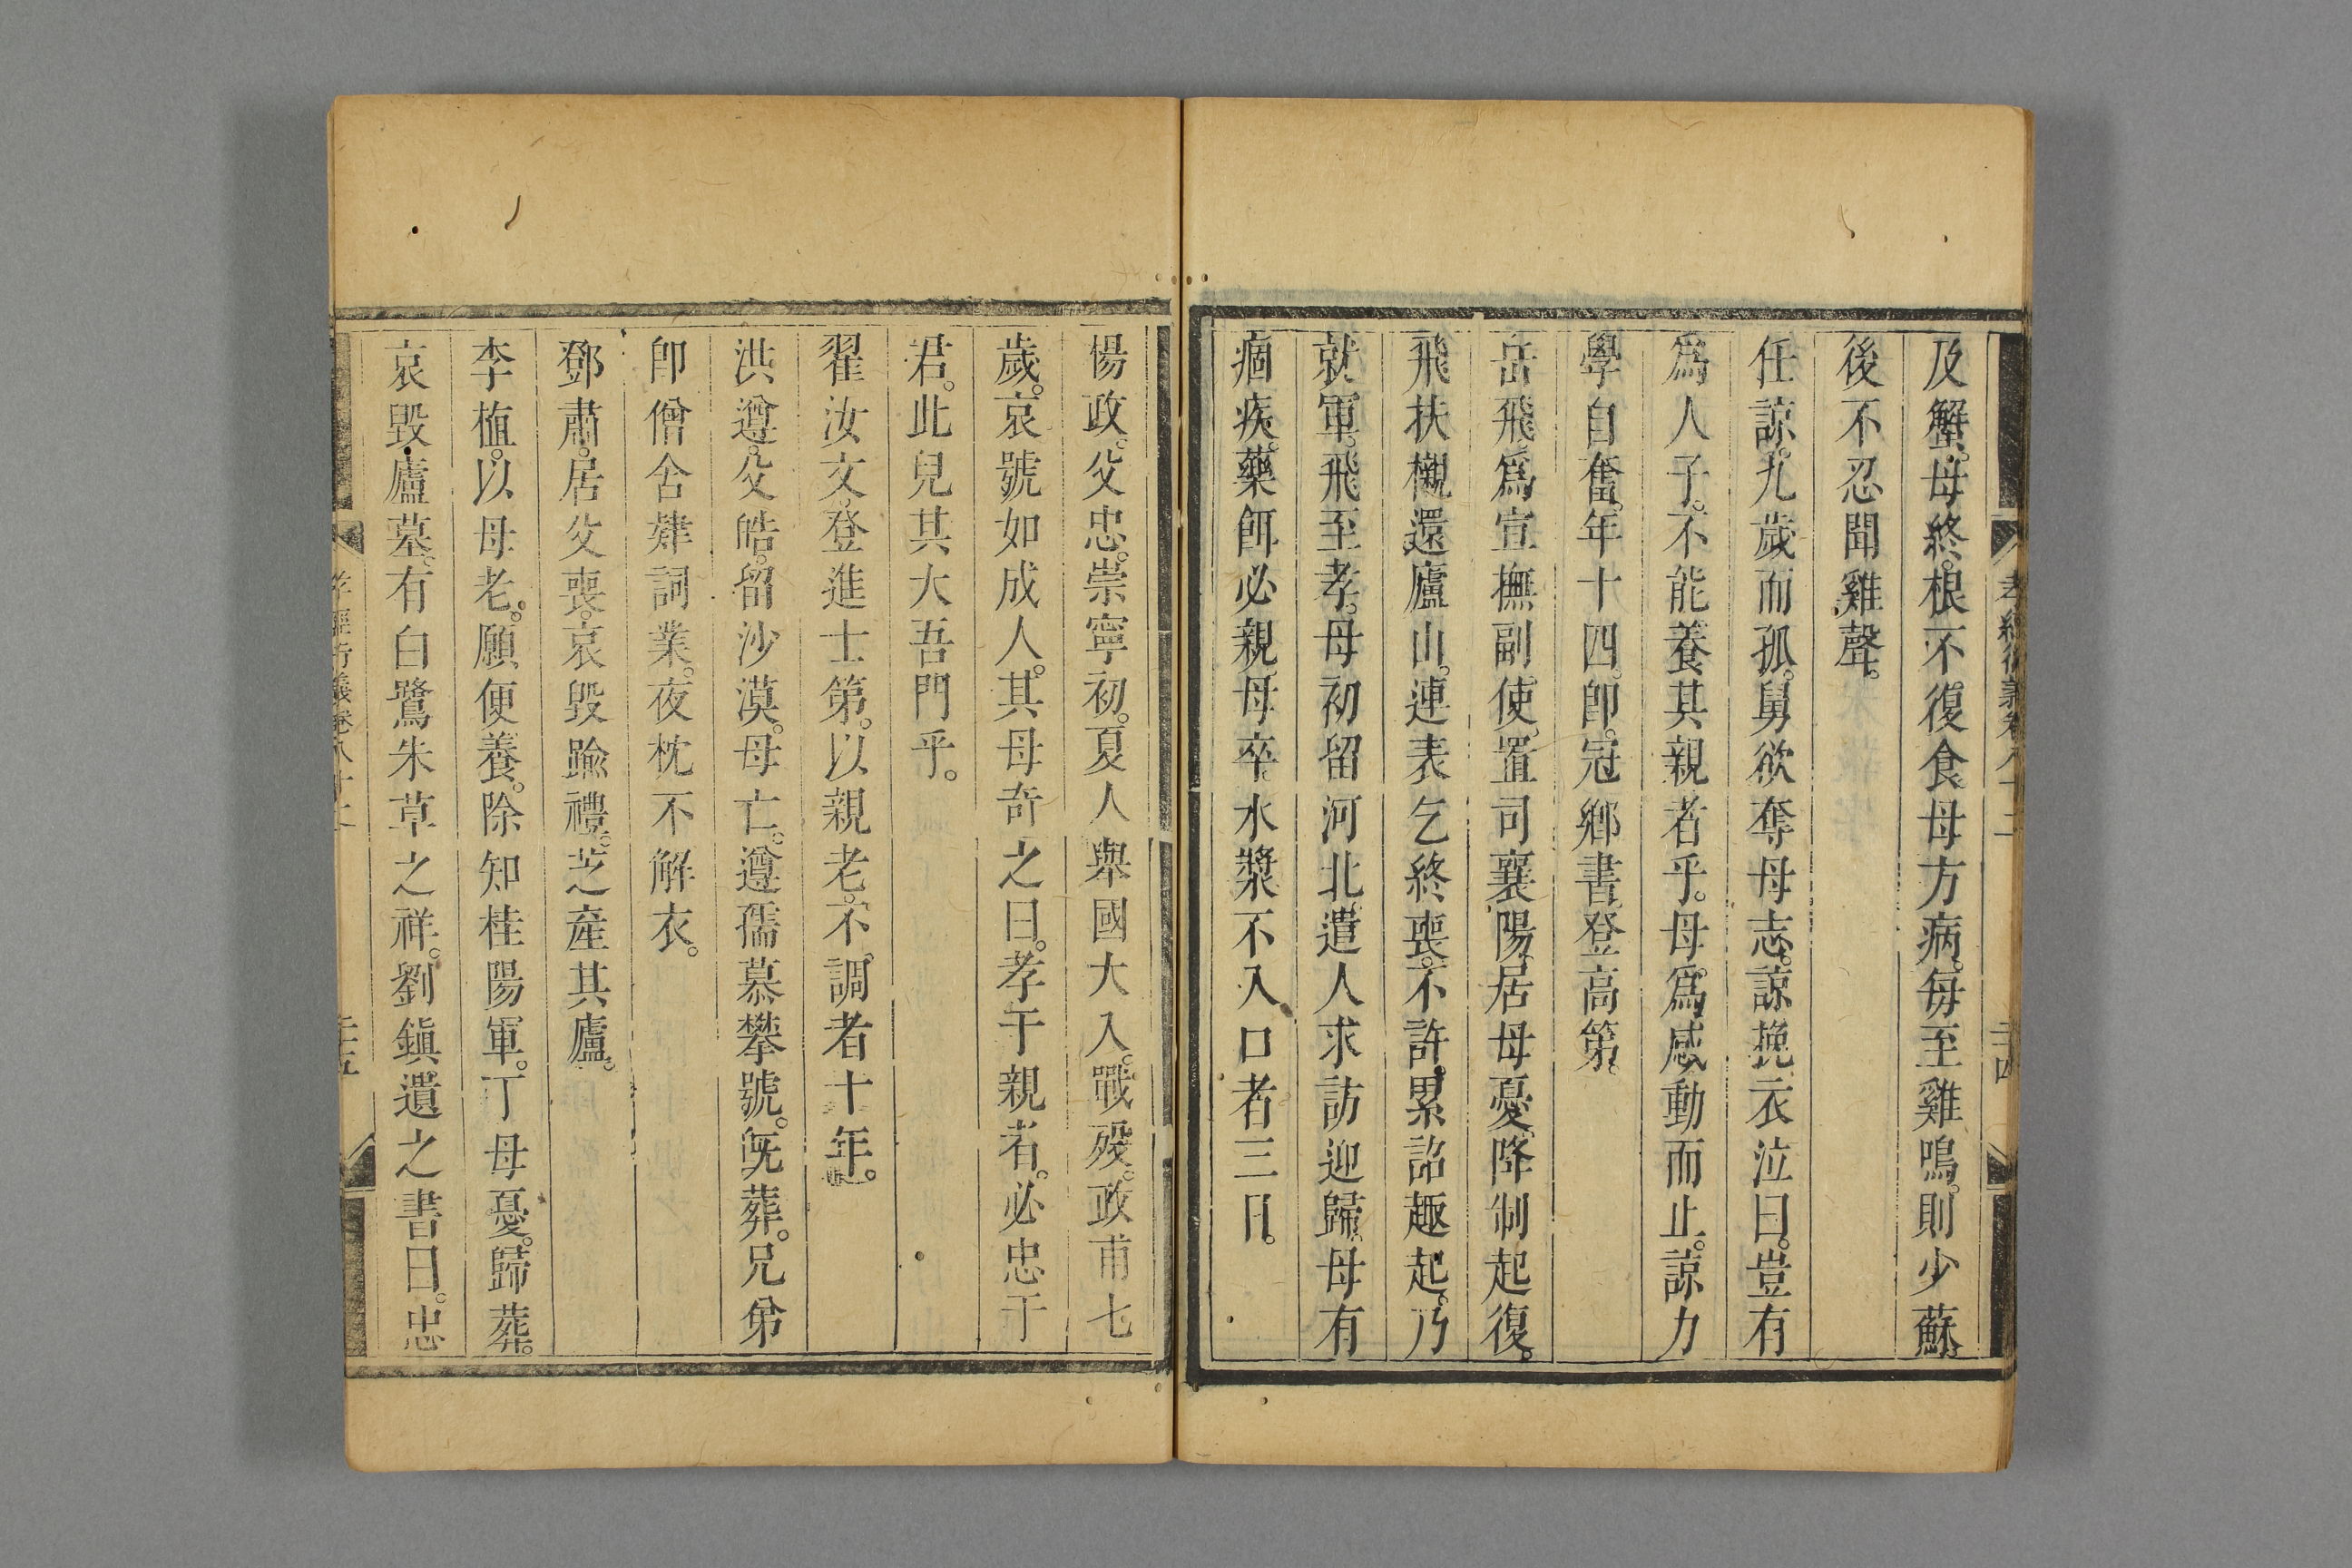 孝經衍義卷八十二
二十四
及蟹。母終。根不復食。母方病。每至雞鳴。則少蘇。
後不忍聞雞聲。
任諒。九歲而孤。舅欲奪母志。諒挽衣泣曰。豈有
爲人子。不能養其親者乎。母爲感動而止。諒力
學自奮。年十四。卽冠鄉書。登高第。
岳飛爲宣撫副使。置司襄陽。居母憂。降制起復。
飛扶櫬還廬山。連表乞終喪。不許。累詔趣起。乃
就軍。飛至孝。母初留河北。遣人求訪迎歸。母有
痼疾。藥餌必親。母卒。水漿不入口者三日。
楊政。父忠。崇寧初。夏人舉國大入。戰歿。政甫七
歲。哀號如成人。其母奇之曰。孝于親者。必忠于
君。此兒其大吾門乎。
翟汝文。登進士第。以親老。不調者十年。
洪遵。父皓。留沙漠。母亡。遵孺慕攀號。旣葬。兄弟
卽僧舍肄詞業。夜枕不解衣。
鄧肅。居父喪。哀毀踰禮。芝產其廬。
李植。以母老。願便養。除知桂陽軍。丁母憂。歸葬。
哀毀廬墓。有白鷺朱草之祥。劉錡遺之書曰。忠
孝經衍義卷八十二
二十五